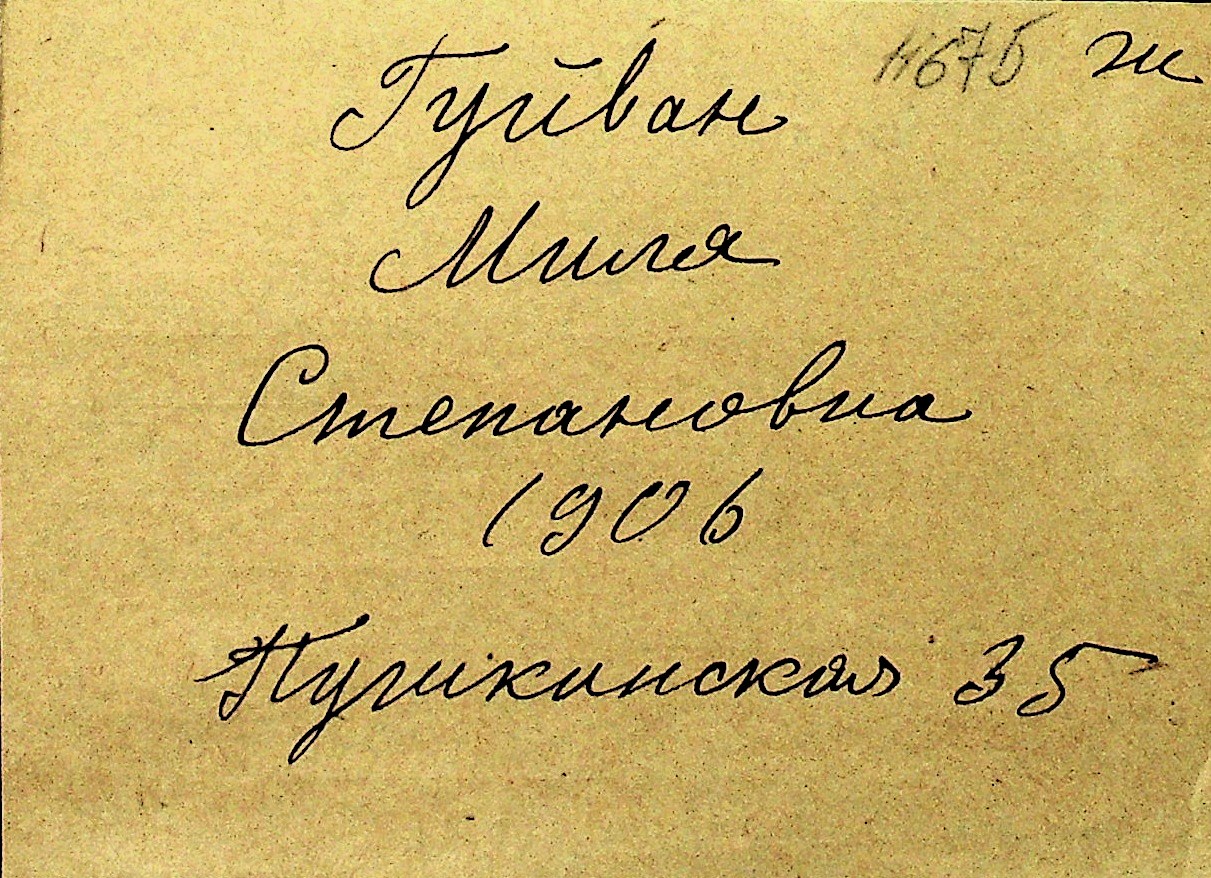 Гуйван 4675 ж
Миля
Степановна
1906
Пушкинская 35